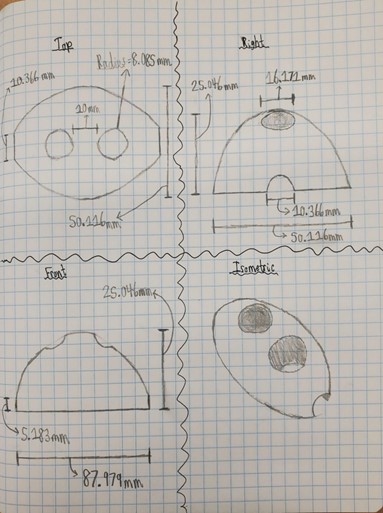 Top
10.366mm
Radius=8.085mm
10mm
50.116mm
Right
25.046mm
16.171mm
10.366mm
50.116mm
Front
25.046mm
5.183mm
87.979mm
Isometric